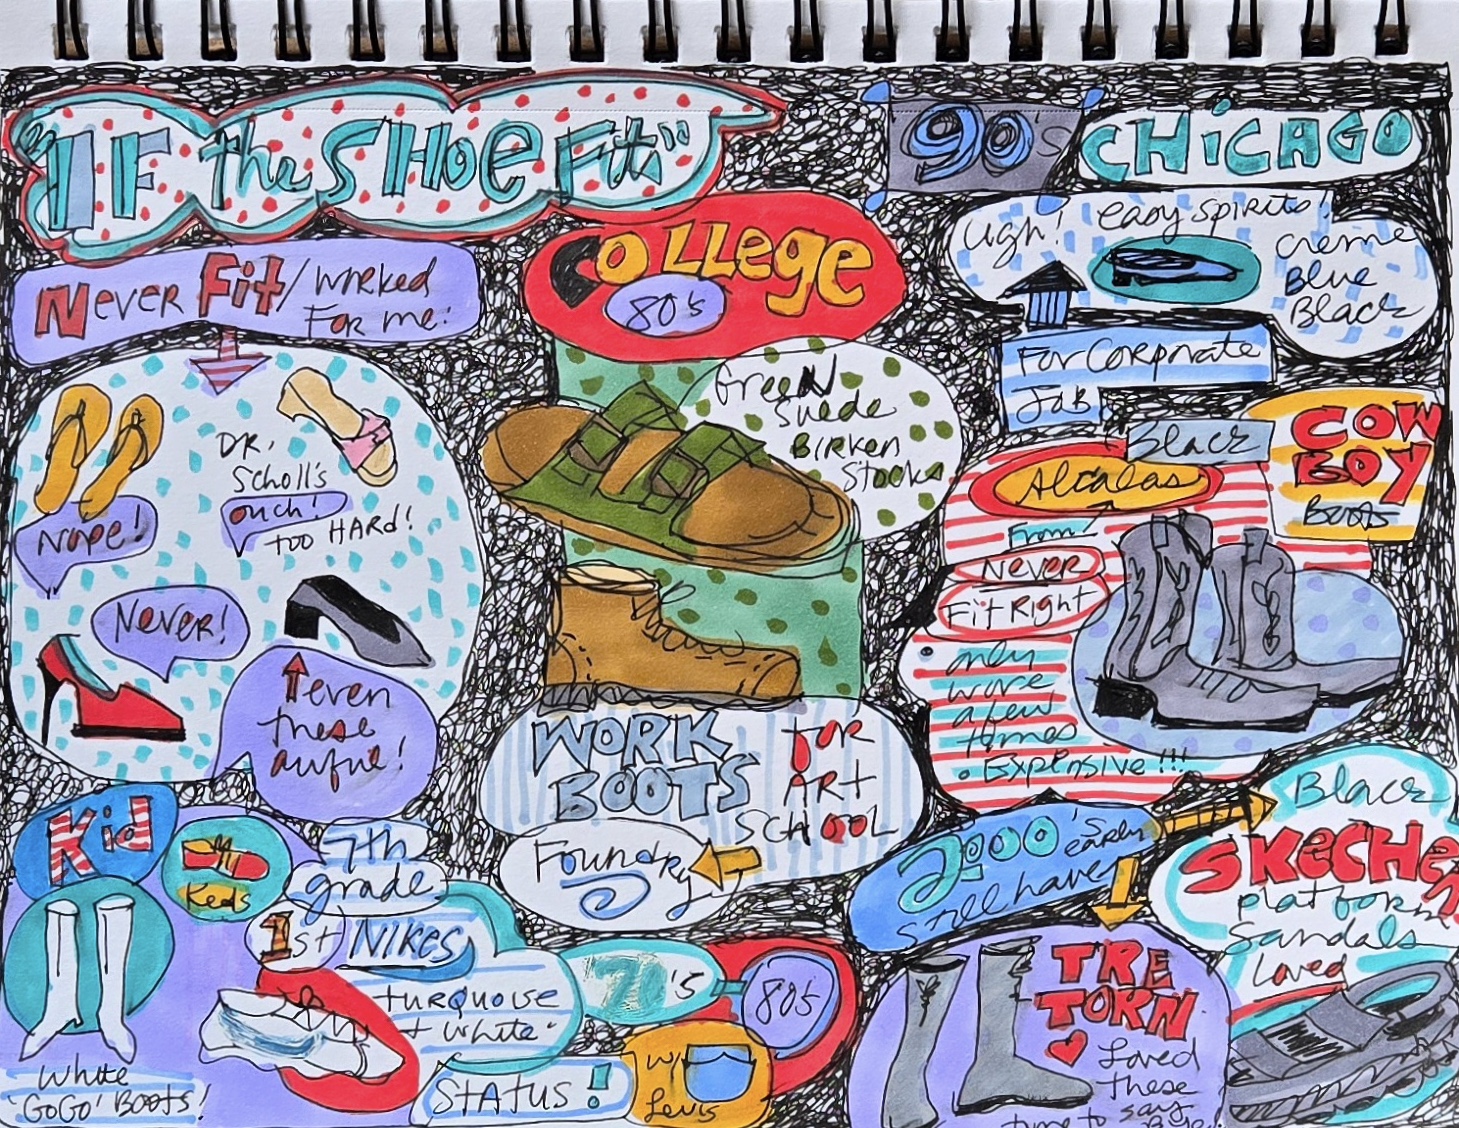 "IF the SHOE Fits"
Never Fit/worked
For me:
DR.
Scholl's
ouch!
TOO HARD!
Nope!
Never!
even
these
awful!
COLLEGE
80's
Green
Suede
Birken
Stocks
WORK
BOOTS
FOR
ART
SCHOOL
Foundry
90's
CHICAGO
Ugh! easy spirits!
creme
Blue
Black
For Corporate
JOB
Black
COW
BOY
Boots
Alcalas
From
Never
Fit Right
only
wore
a few
times
• Expensive!!!
Kid
Keds
White
"GOGO' BOOTS!
7th
grade
1st NIKES
turquoise
+ white
STATUS!
70's
80's
w/
Levis
2000's early
still have
Black
SKECHER
platform
Sandals
Loved
TRE
TORN
Loved
these
say
time to